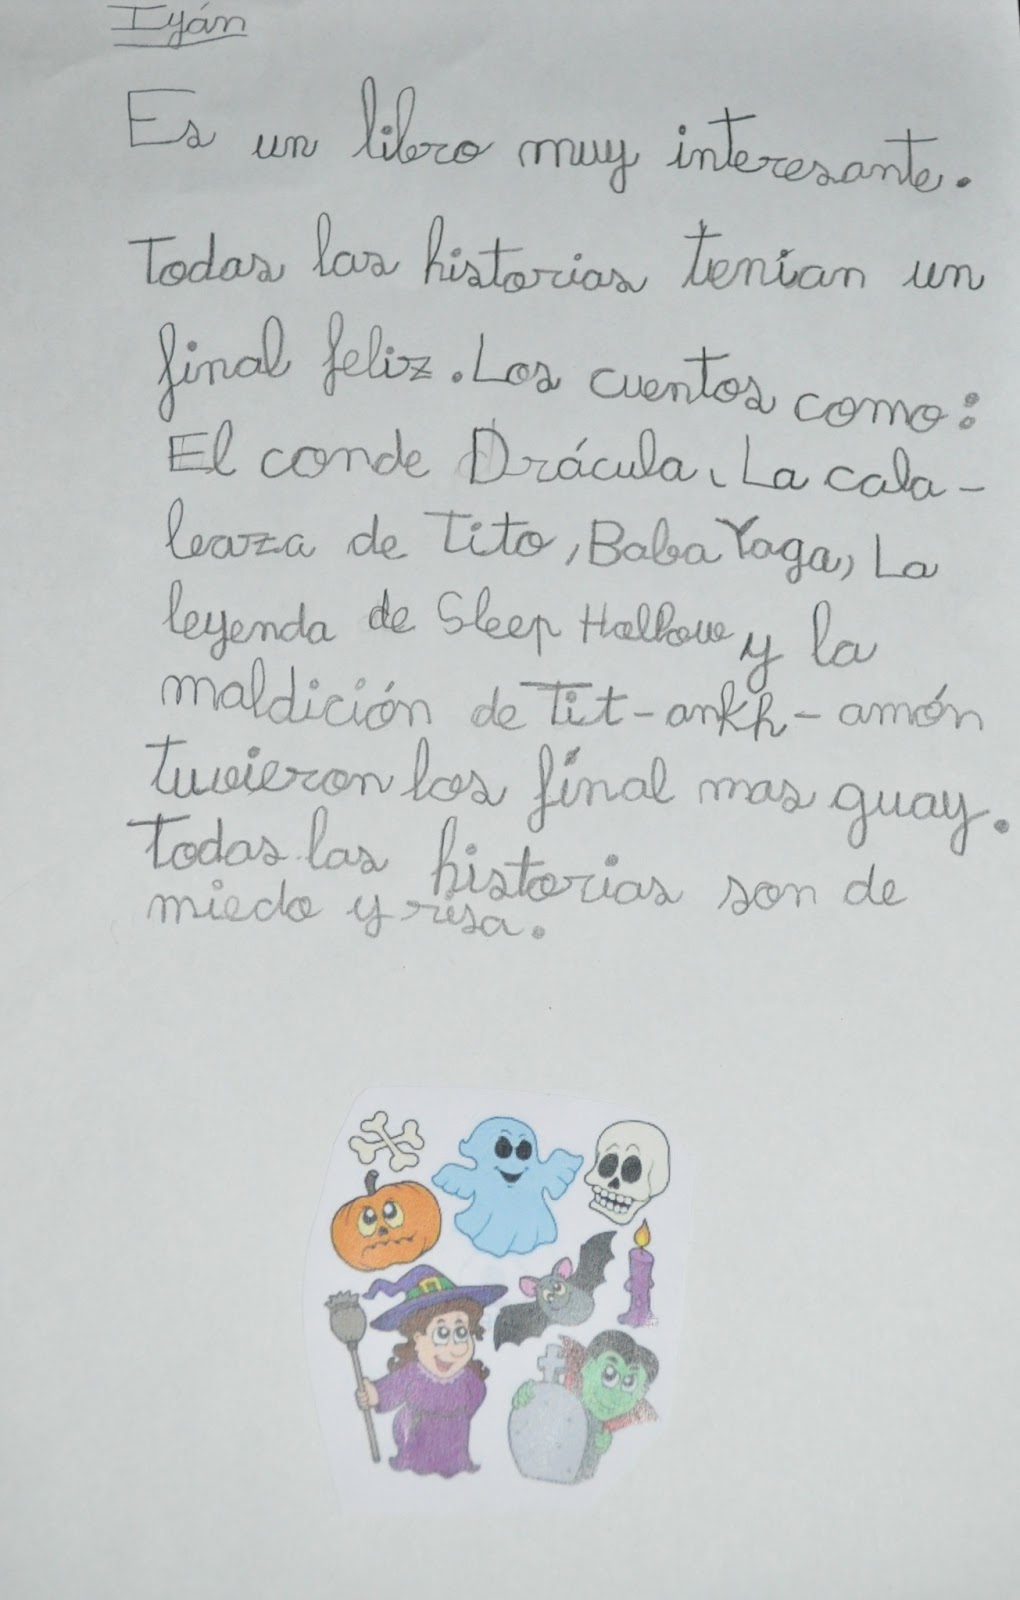 Iyán
Es un libro muy interesante.
Todas las historias tenían un
final feliz. Los cuentos como:
El conde Drácula, La cala-
leaza de Tito, Baba Yaga, La
leyenda de Sleep Hallow y la
maldición de Tit-ankh-amón
tuvieron los final mas guay.
Todas las historias son de
miedo y risa.